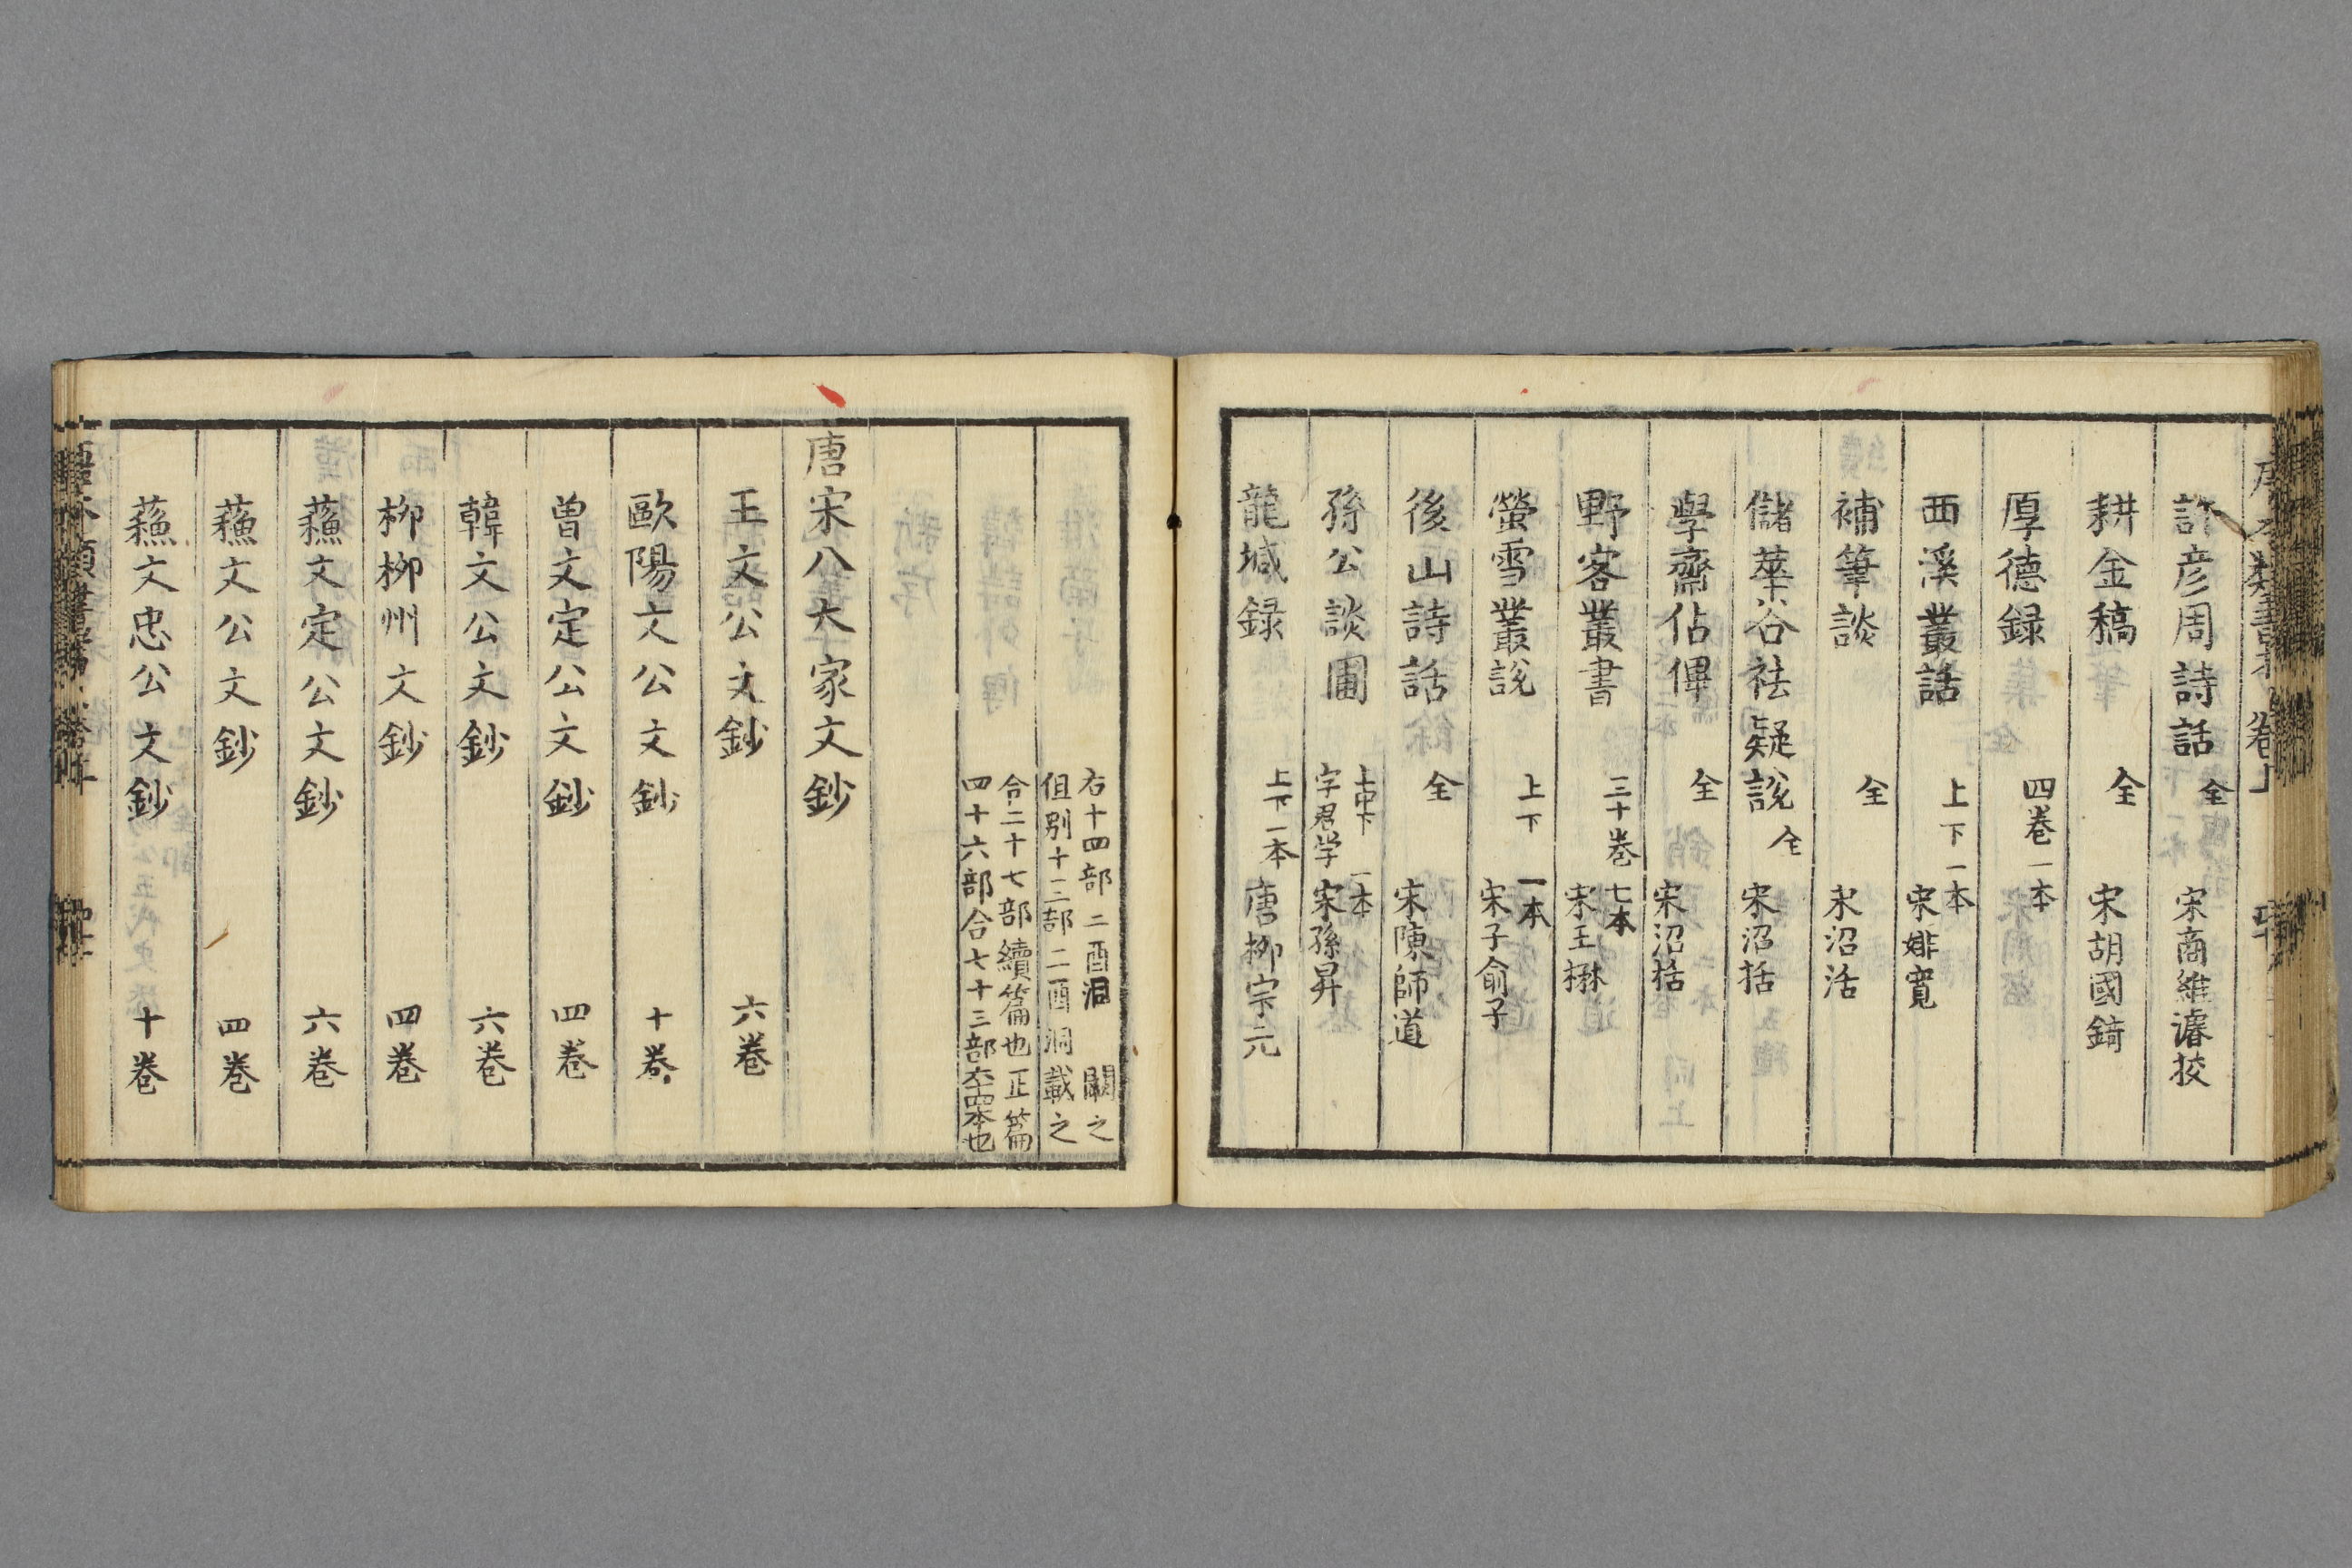 許彦周詩話 全 宋商維濬挍
耕金稿 全 宋胡國錡
厚德録 四卷一本
西溪叢話 上下一本 宋姚寛
補筆談 全 宋沼活
儲華谷祛疑說 全 宋沼括
學齋佔俾 全 宋沼括
野客叢書 三十卷 七本 宋王楙
螢雪叢說 上下 一本 宋子俞子
後山詩話 全 宋陳師道
孫公談圃 上中下 一本 字君学 宋孫昇
龍城録 上下一本 唐柳宗元
右十四部二酉洞 闕之
但别十三部二酉洞載之
合二十七部續篇也正篇
四十六部合七十三部
唐宋八大家文鈔
王文公文鈔 六卷
歐陽文公文鈔 十卷
曽文定公文鈔 四卷
韓文公文鈔 六卷
柳柳州文鈔 四卷
蘓文定公文鈔 六卷
蘓文公文鈔 四卷
蘓文忠公文鈔 十卷